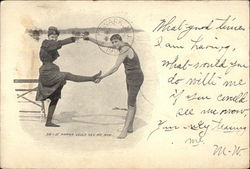 What good times
I am having,
what would you
do with me
if you could
see me now,
I'm
me.
M-W.
IF MAMMA COULD SEE ME NOW.